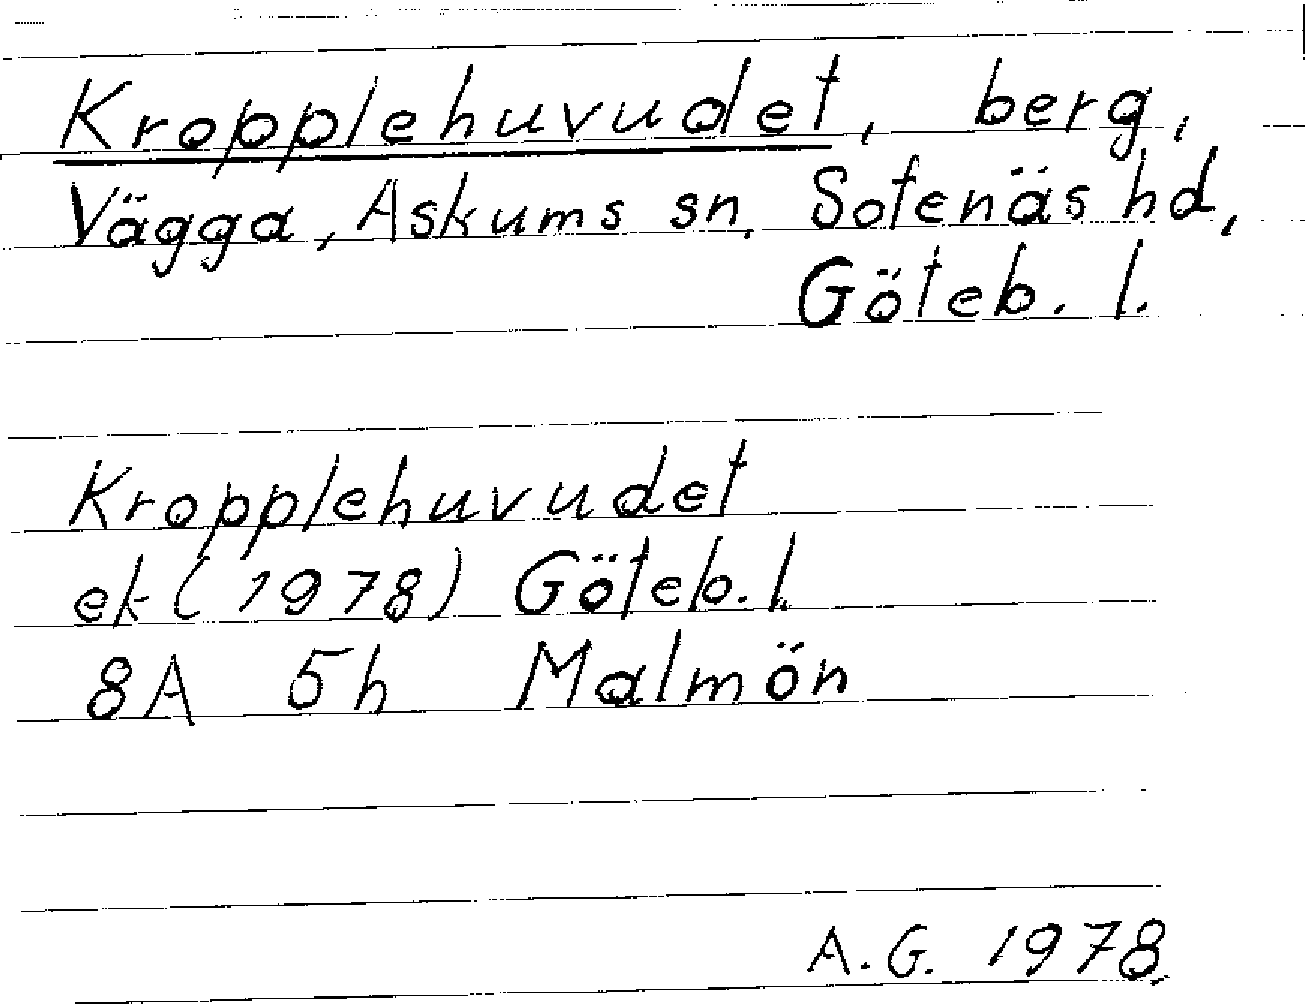 Kropplehuvudet, berg,
Vägga, Askums sn, Sotenäs hd,
Göteb. l.
Kropplehuvudet
ek (1978) Göteb. l.
8A 5h Malmön
A.G. 1978.